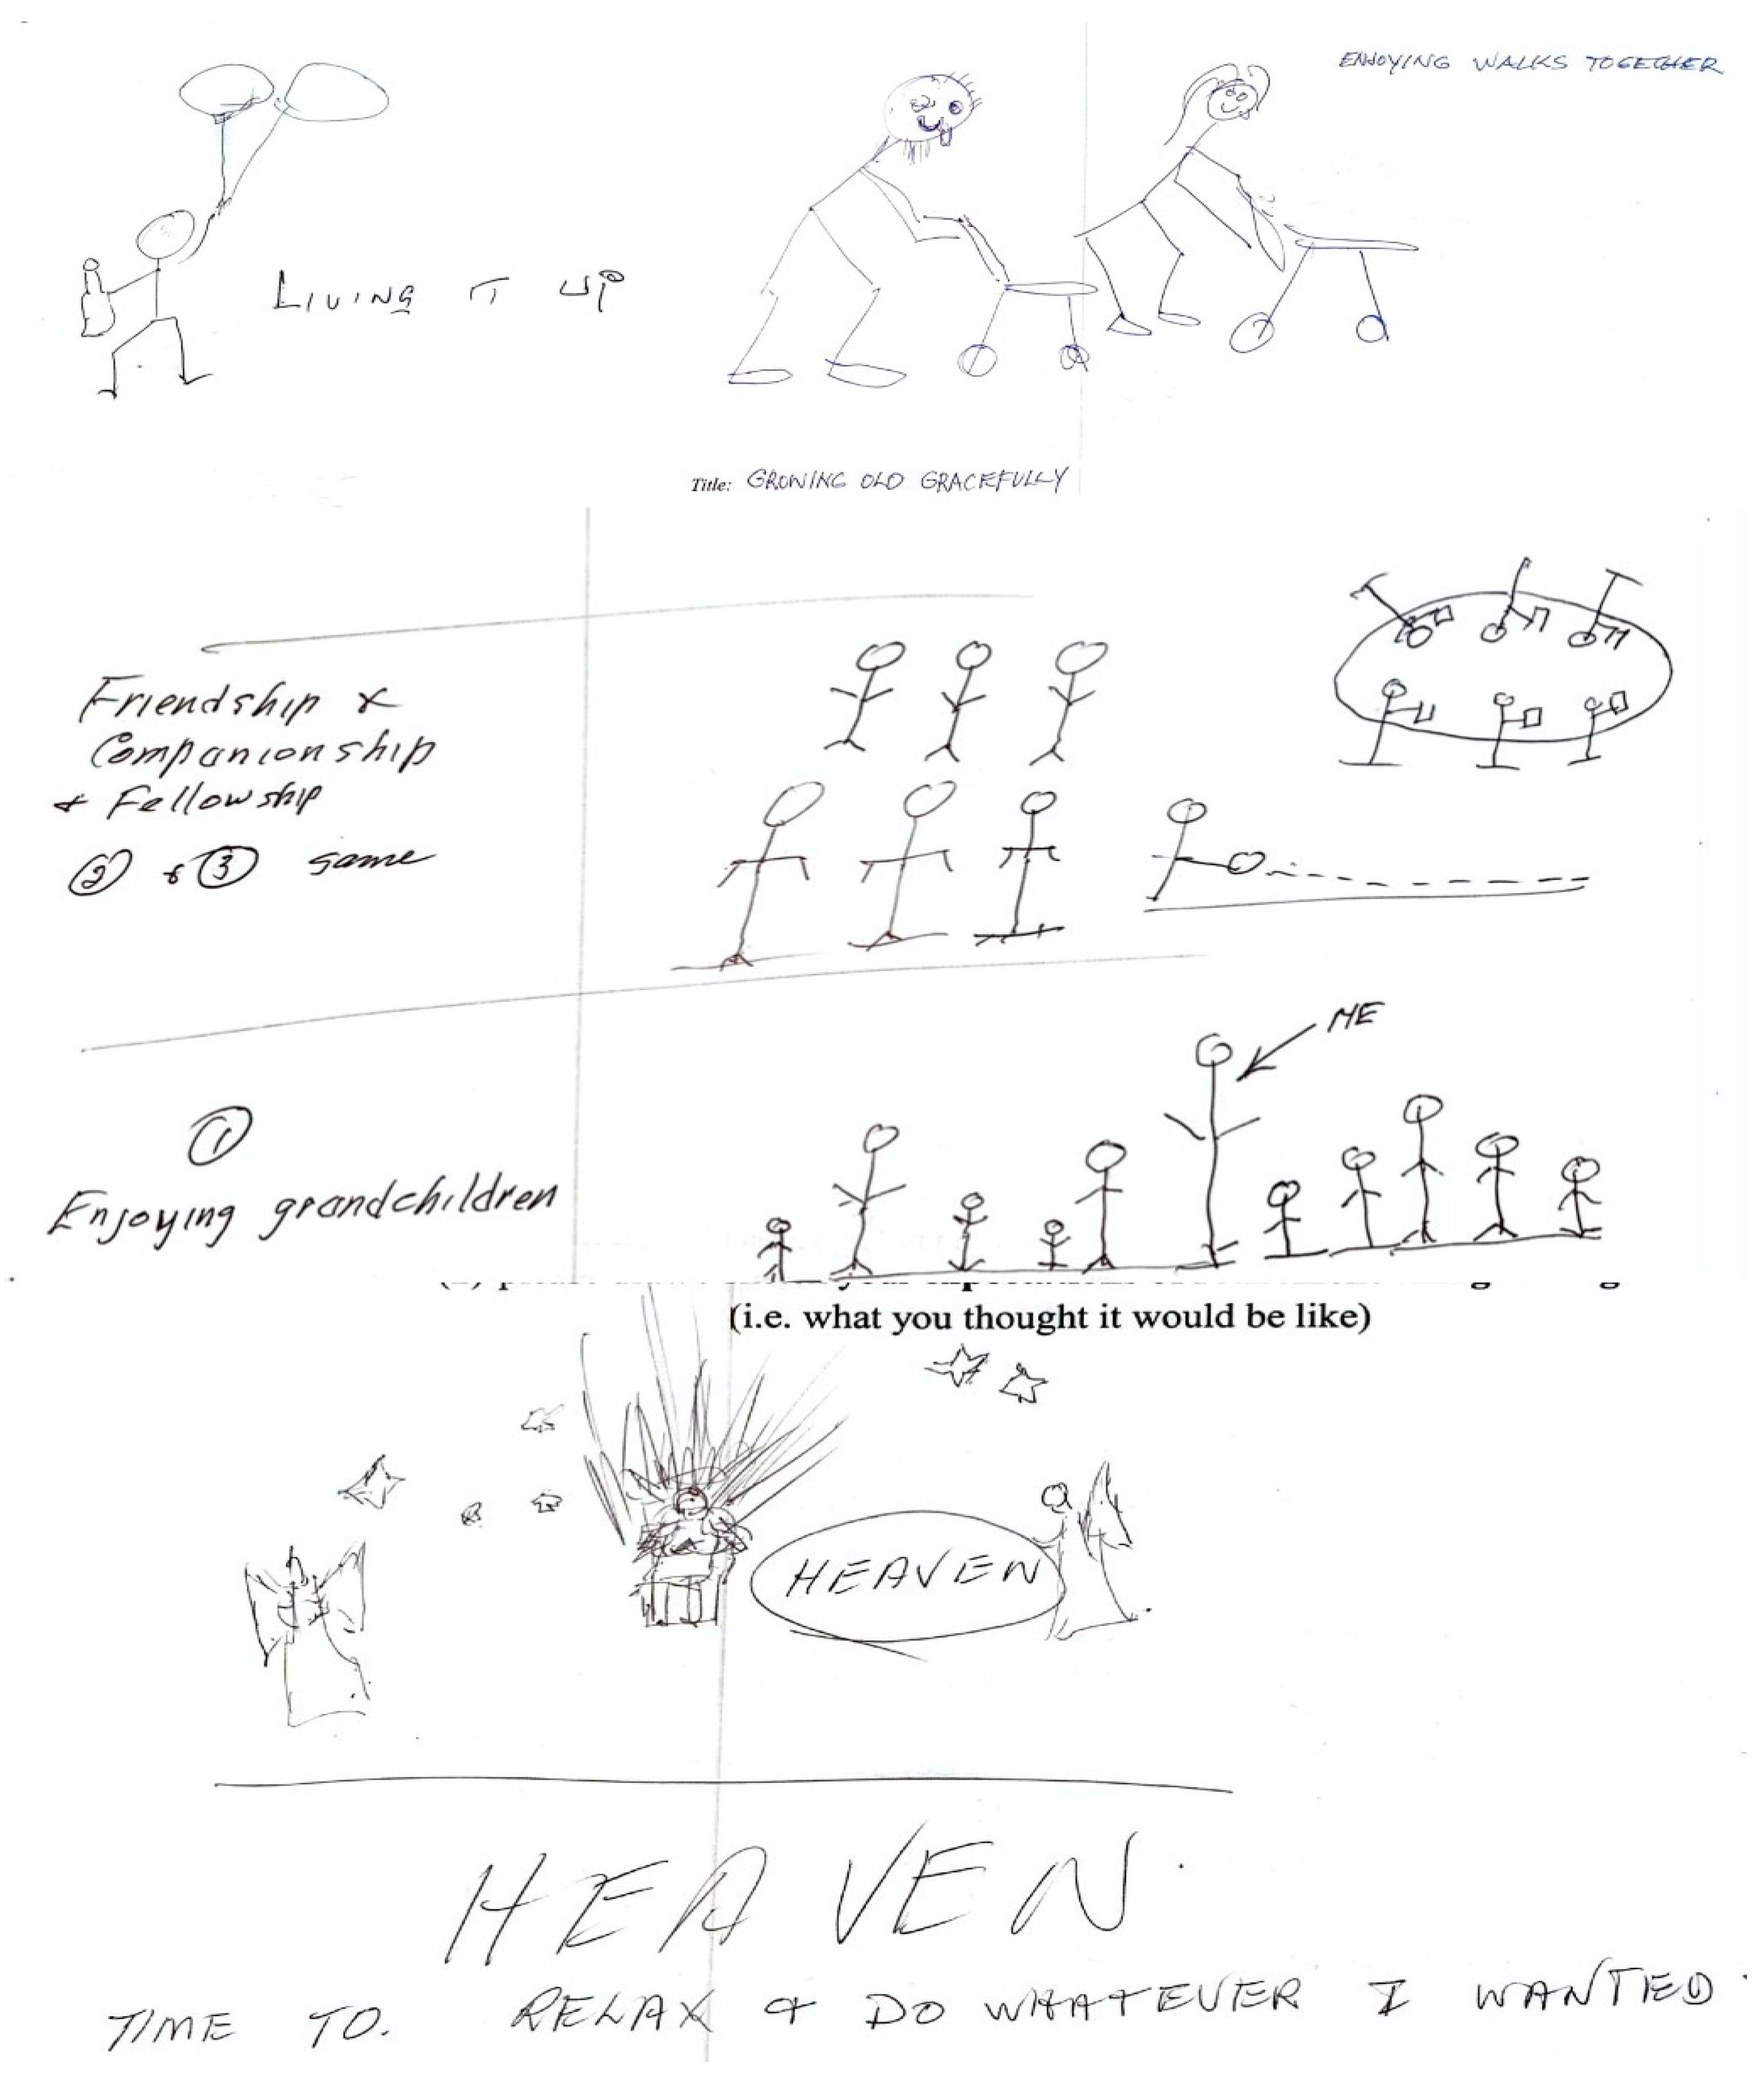 ENJOYING WALKS TOGETHER
LIVING IT UP
Title: GROWING OLD GRACEFULLY
Friendship &
Companionship
& Fellowship
2 & 3 same
ME
1
Enjoying grandchildren
(i.e. what you thought it would be like)
HEAVEN
HEAVEN.
TIME TO. RELAX & DO WHATEVER I WANTED.